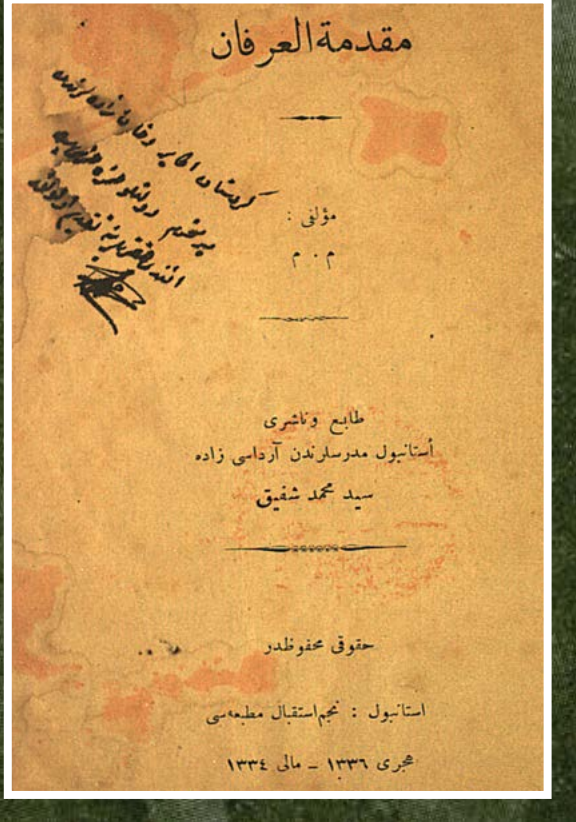 مقدمة العرفان
كردستان اكابر
مؤلفی :
م . م
طابع وناشری
أستانبول مدرسلرندن آرداسی زاده
سید محمد شفیق
حقوقی محفوظدر
استانبول : نجم استقبال مطبعه‌سی
هجری ١٣٣٦ ـ مالی ١٣٣٤